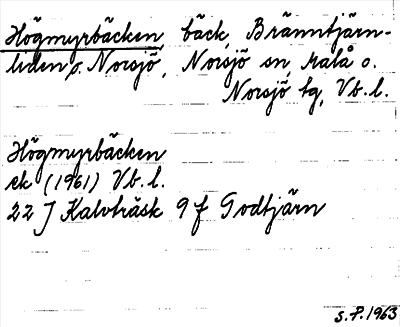 Högmyrbäcken, bäck, Bränntjärn-
liden, s. Norsjö, Norsjö sn, Malå o.
Norsjö tg, Vb. l.
Högmyrbäcken
ek (1961) Vb. l.
22 J Kalvträsk 9 f Godtjärn
S.P. 1963